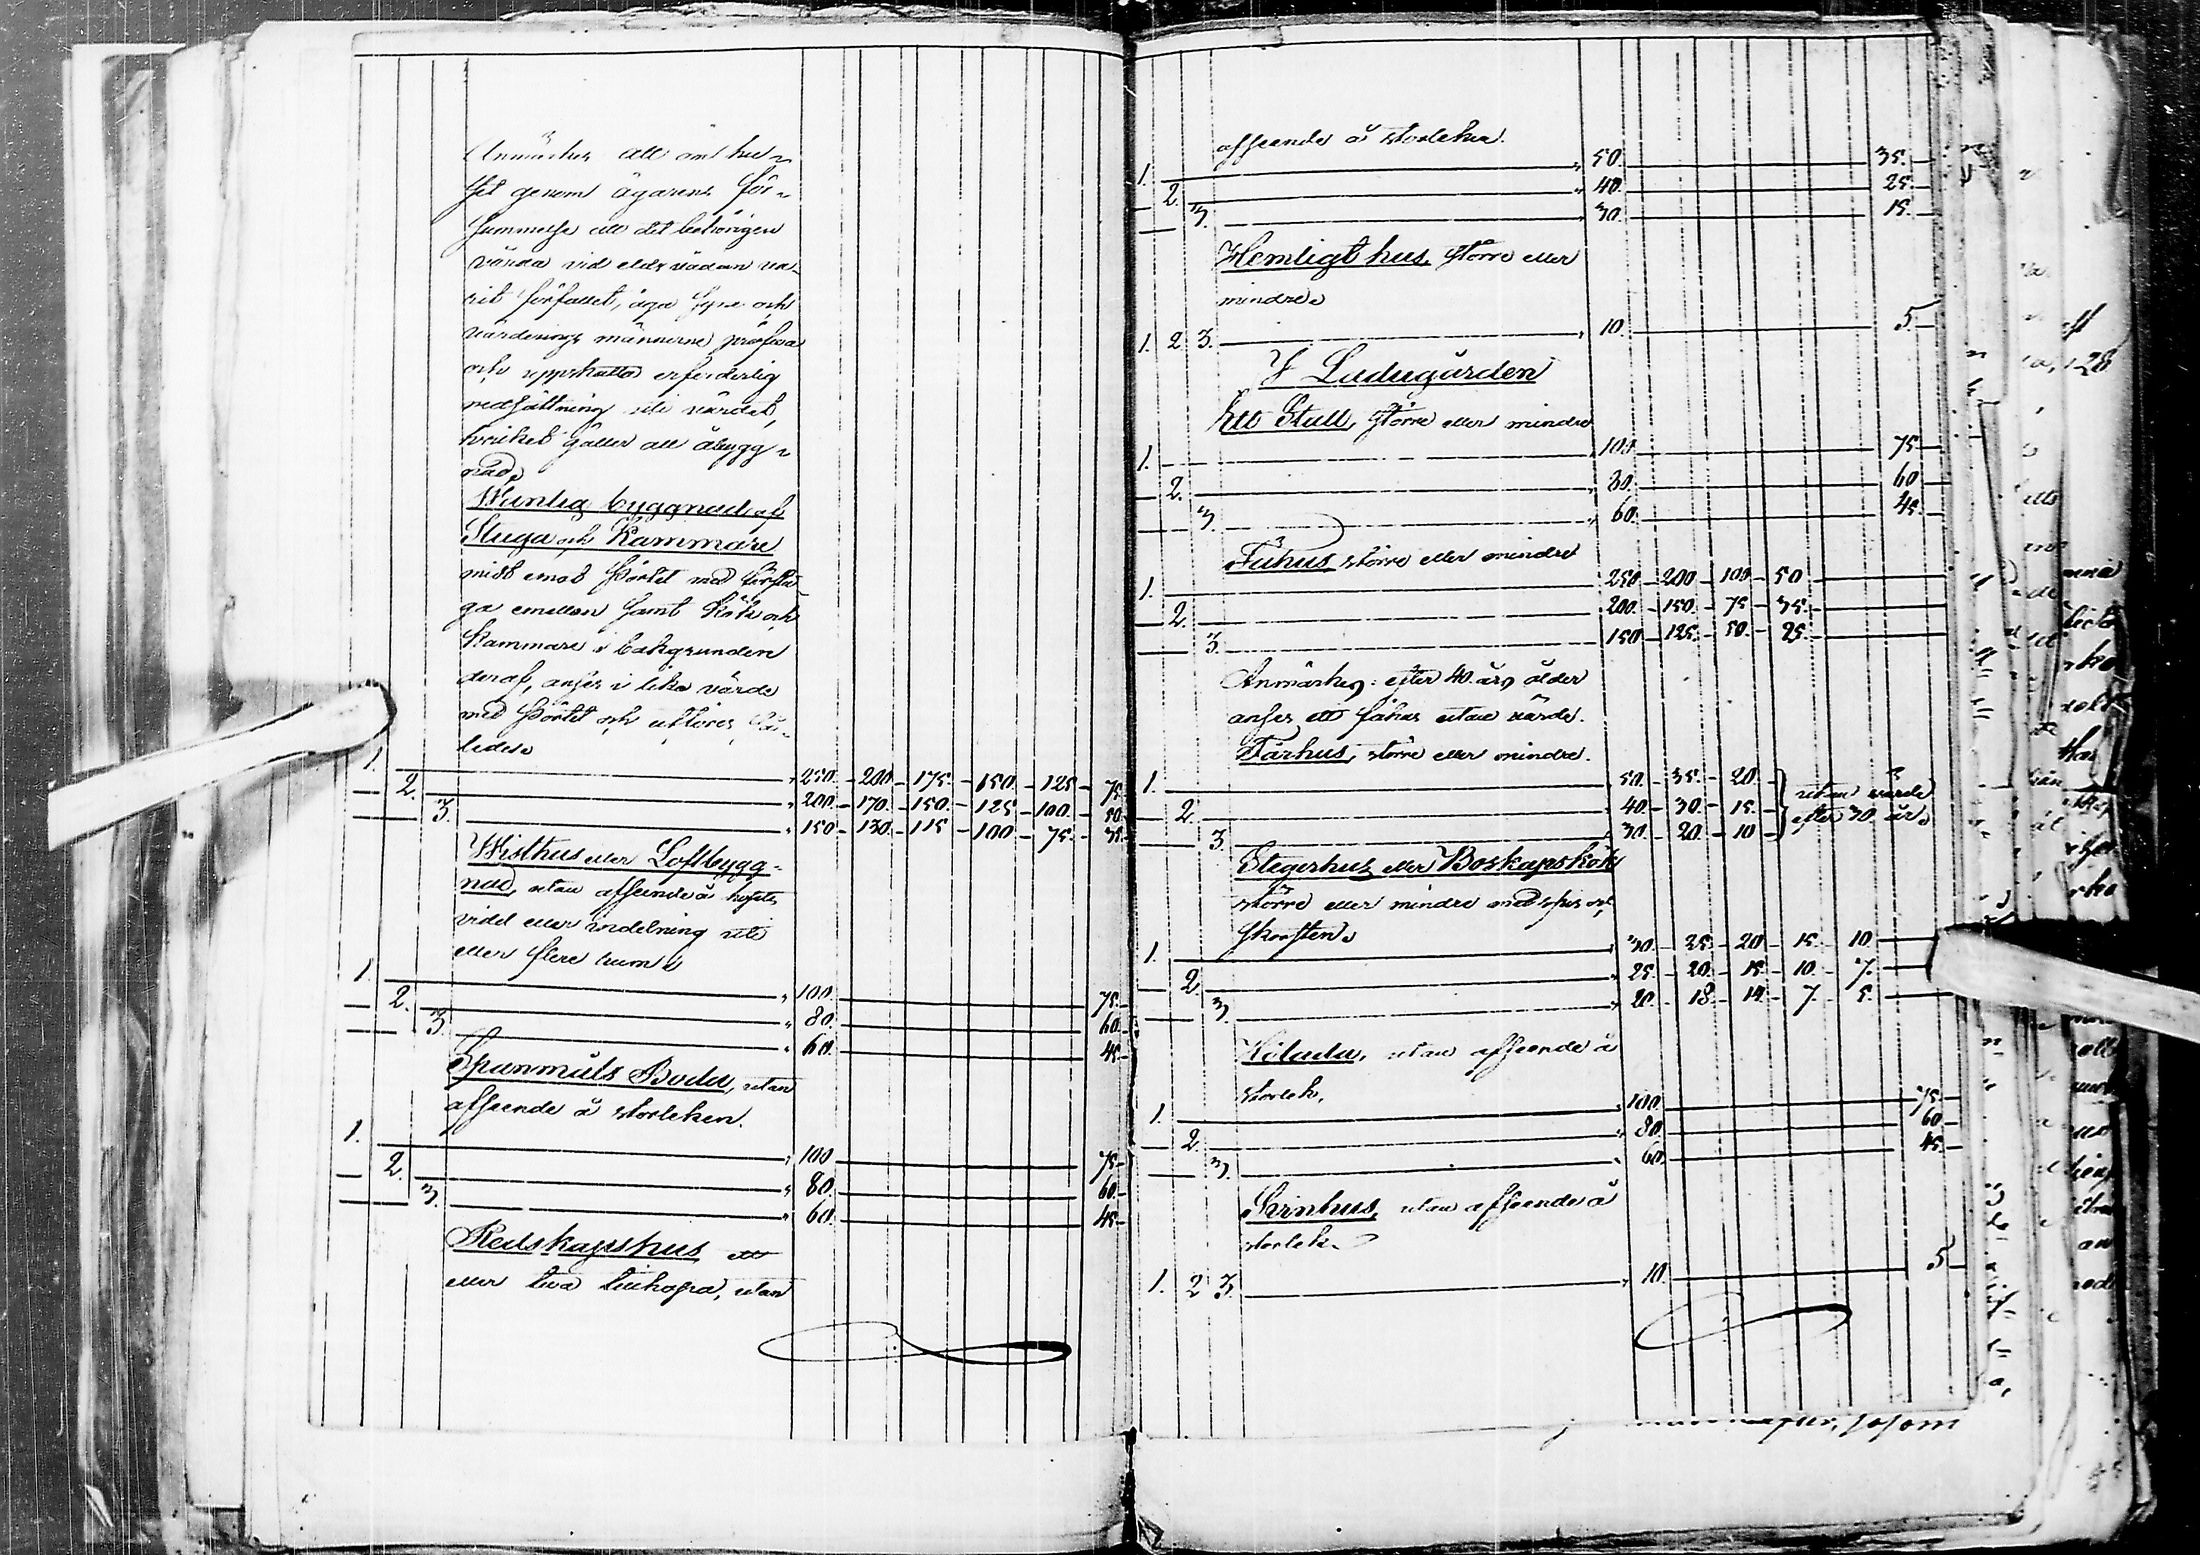 Anmärkes att om hu-
set genom ägarens för-
summelse att det behörigen
vårda vid eldsvådan va-
rit förfallet, äga Syne och
värderings männerne pröfva
och uppskatta erforderlig
nedsättning uti värdet,
hvilket gäller all åbygg-
nad.
Wånlig byggnad af
Stuga och Kammare
midt emot Pörtet med förstu-
ga emellan samt Kök och
Kammare i bakgrunden
deraf, anses i lika värde
med Pörtet och utföres så-
ledes
1. 250 - 200 - 175 - 150 - 125 - 75
2. 200 - 170 - 150 - 125 - 100 - 50
3. 150 - 130 - 115 - 100 - 75 - 35
Wisthus eller Loftbygg-
nad, utan afseende å högd
vidd eller indelning uti
eller flere rum
1. 100 75
2. 80 60
3. 60 45
Spanmåls Boda, utan
afseende å storleken.
1. 100 75
2. 80 60
3. 60 45
Redskapshus ett
eller två, utan
afseende å storleken.
1. 50 35
2. 40 25
3. 30 15
Hemligt hus, större eller
mindre
1. 2 3. 10. 5
I Ladugården
Ett Stall, större eller mindre
1. 100 75
2. 80 60
3. 60 45
Fähus större eller mindre
1. 250 - 200 - 100 - 50
2. 200 - 150 - 75 - 35
3. 150 - 125 - 50 - 25
Anmärkes: efter 40 års ålder
anses ett fähus utan värde.
Fårhus, större eller mindre.
1. 50 - 35 - 20 utan värde
2. 40 - 30 - 15 efter 30 år
3. 30 - 20 - 10
Stegerhus eller Boskapskök
större eller mindre med spis och
skorsten
1. 30 - 25 - 20 - 15 - 10
2. 25 - 20 - 15 - 10 - 7
3. 20 - 18 - 14 - 7 - 5
Hölada, utan afseende å
storlek.
1. 100 75
2. 80 60
3. 60 45
utan afseende å
storlek.
1. 2 3. 10. 5